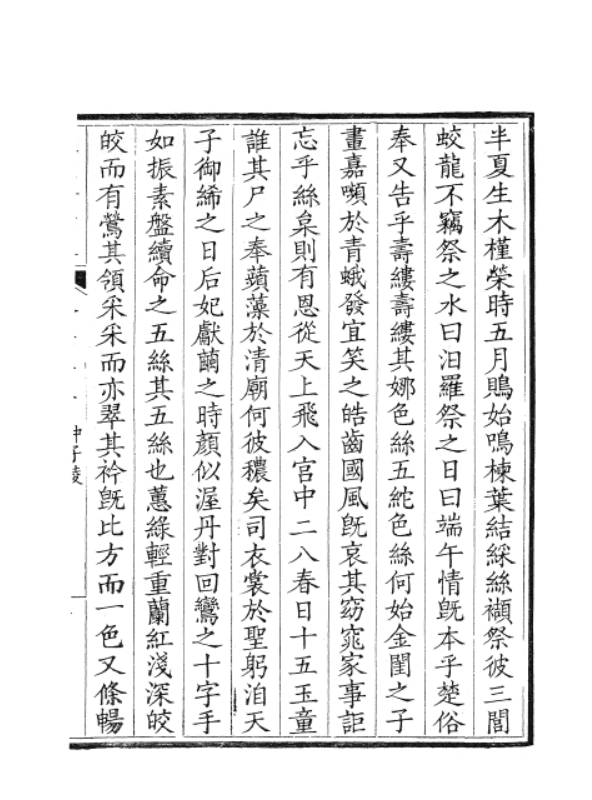 半夏生木槿榮時五月鵙始鳴楝葉結綵絲襭祭彼三閭
蛟龍不竊祭之水曰汨羅祭之日曰端午情旣本乎楚俗
奉又告乎壽縷壽縷其娜色絲五紽色絲何始金閨之子
畫嘉嚬於青蛾發宜笑之皓齒國風旣哀其窈窕家事詎
忘乎絲枲則有恩從天上飛入宮中二八春日十五玉童
誰其尸之奉蘋藻於清廟何彼穠矣司衣裳於聖躬洎天
子御絺之日后妃獻繭之時顏似渥丹對回鸞之十字手
如振素盤續命之五絲其五絲也蕙綠輕重蘭紅淺深皎
皎而有鶯其領采采而亦翠其衿旣比方而一色又條暢
仲子陵